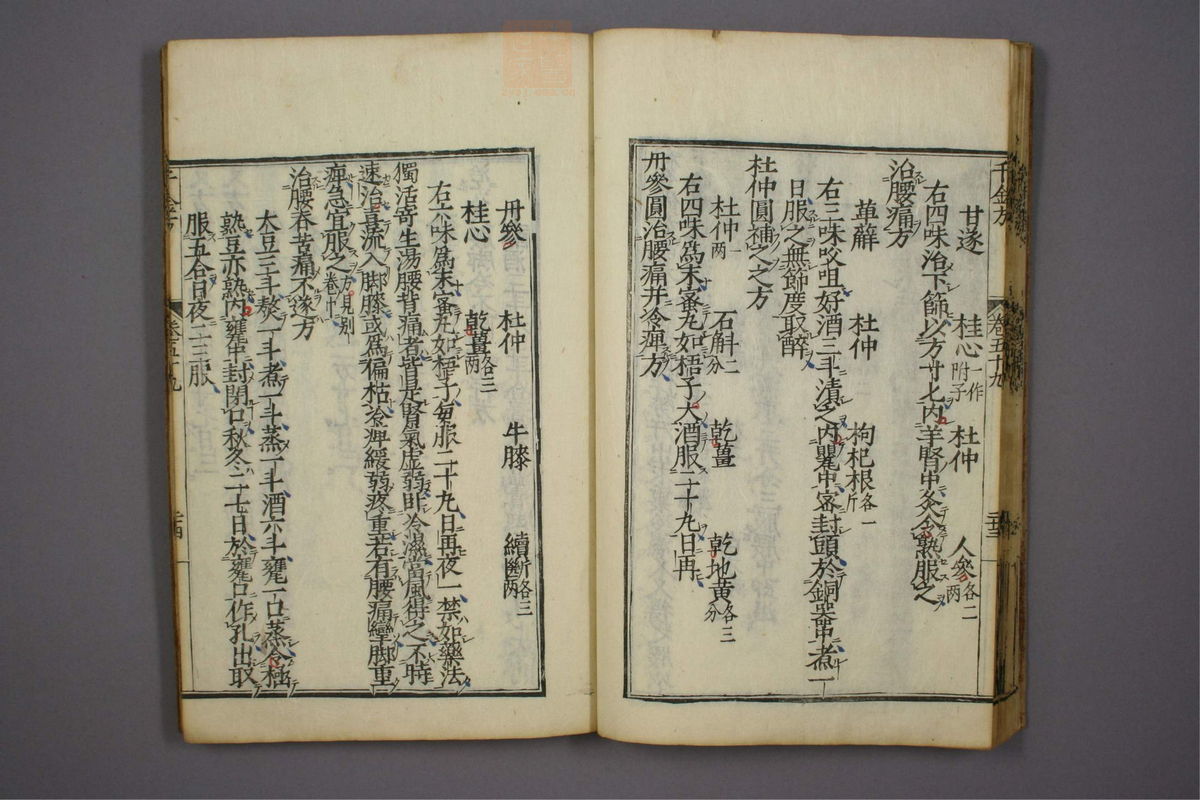 千金方 卷五十九 二十三
甘遂 桂心一作附子 杜仲 人參各二兩
右四味治下篩以方寸匕內羊腎中灸令熟服之
治腰痛方
萆薢 杜仲 枸杞根各一斤
右三味㕮咀好酒三斗漬之內甖中密封頭於銅器中煮一
日服之無節度取醉
杜仲圓補之之方
杜仲一兩 石斛二分 乾薑 乾地黃各三分
右四味為末蜜丸如梧子大酒服二十九日再
丹參圓治腰痛并冷痺方
丹參 杜仲 牛膝 續斷各三兩
桂心 乾薑各三兩
右六味為末蜜丸如梧子每服二十九日再夜一禁如藥法
獨活寄生湯腰背痛者皆是腎氣虛弱臥冷濕當風得之不時
速治喜流入脚膝或為偏枯冷痺緩弱疼重若有腰痛攣脚重
痺急宜服之方見別卷中
治腰脊苦痛不遂方
大豆三斗熬一斗煮一斗蒸一斗酒六斗甕一口蒸令極
熟豆亦熱內甕中封閉口秋冬二七日於甕口作孔出取
服五合日夜二三服
千金方 卷五十九 二十四